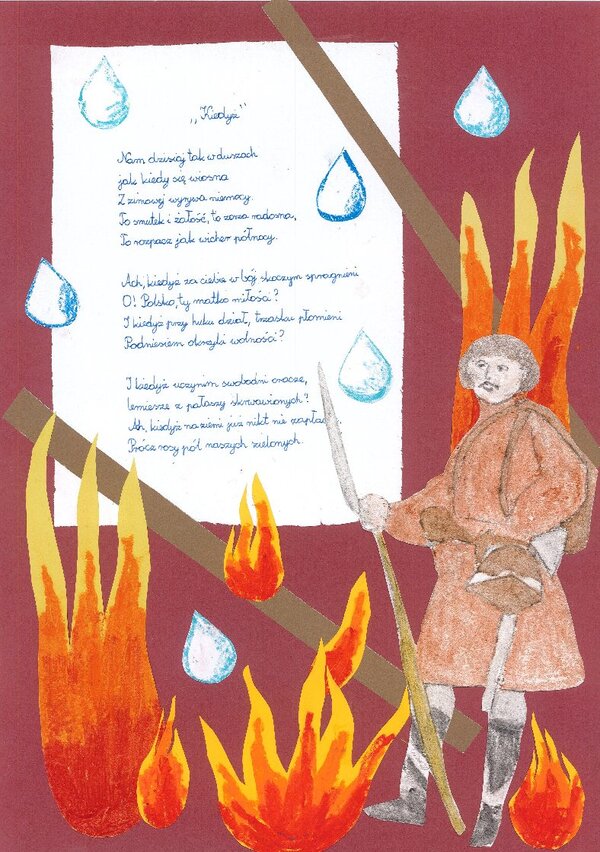 „Kiedyż"
Nam dzisiaj tak w duszach
jak kiedy się wiosna
Z zimowej wyrywa niemocy.
To smutek i żałość, to zorza radosna,
To rozpacz jak wicher północy.
Ach, kiedyż za ciebie w bój skoczym spragnieni
O! Polsko, ty matko miłości?
I kiedyż przy huku dział, trzasku płomieni
Podniesiem okrzyki wolności?
I kiedyż uczynim swobodni oracze,
lemiesze z pałaszy skrwawionych?
Ah, kiedyż na ziemi już nikt nie
Prócz rosy pól naszych zielonych